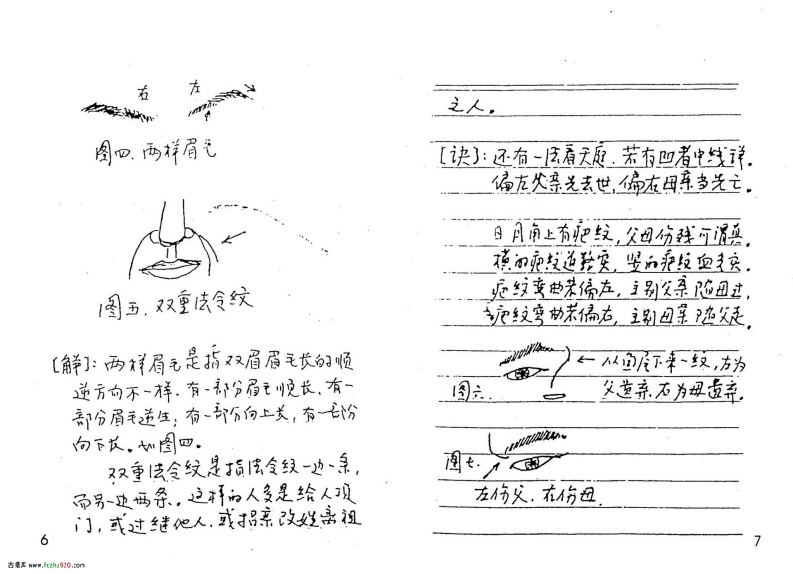 右 左
图四、两样眉毛
图五、双重法令纹
[解]：两样眉毛是指双眉眉毛长的顺
逆方向不一样，有一部分眉毛顺长，有一
部分眉毛逆生，有一部分向上长，有一部分
向下长。如图四。
双重法令纹是指法令纹一边一条，
而另一边两条。这样的人多是给人顶
门，或过继他人，或招亲改姓离祖
6
之人。
[诀]：还有一法看天庭，若有凹者中线详。
偏左父亲先去世，偏右母亲当先亡。
日月角上有疤纹，父母伤残可谓真。
横的疤纹道
实，竖的疤纹血
实。
疤纹弯曲若偏左，主别父亲随母过，
疤纹弯曲若偏右，主别母亲随父走。
从向底下来一纹，左为
图六. 父遗弃，右为母遗弃。
图七.
左伤父，右伤母.
7
吉簿库 www.fczhu920.com